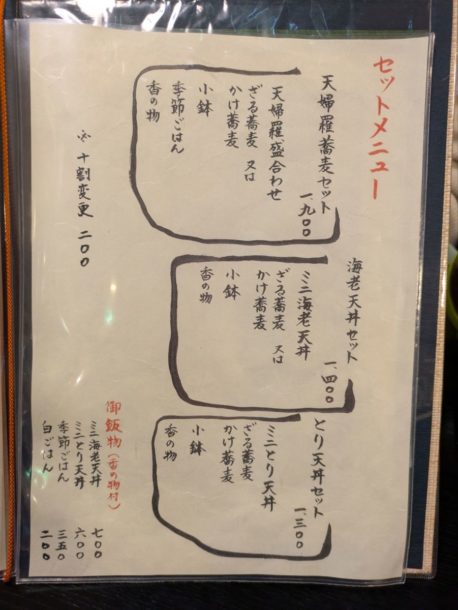 セットメニュー
天婦羅蕎麦セット
一、九〇〇
天婦羅盛合わせ
ざる蕎麦 又は
かけ蕎麦
小鉢
季節ごはん
香の物
※十割変更 二〇〇
海老天丼セット
一、四〇〇
ミニ海老天丼
ざる蕎麦 又は
かけ蕎麦
小鉢
香の物
とり天丼セット
一、三〇〇
ミニとり天丼
ざる蕎麦
かけ蕎麦
小鉢
香の物
御飯物(香の物付)
ミニ海老天丼 七〇〇
ミニとり天丼 六〇〇
季節ごはん 三五〇
白ごはん 二〇〇